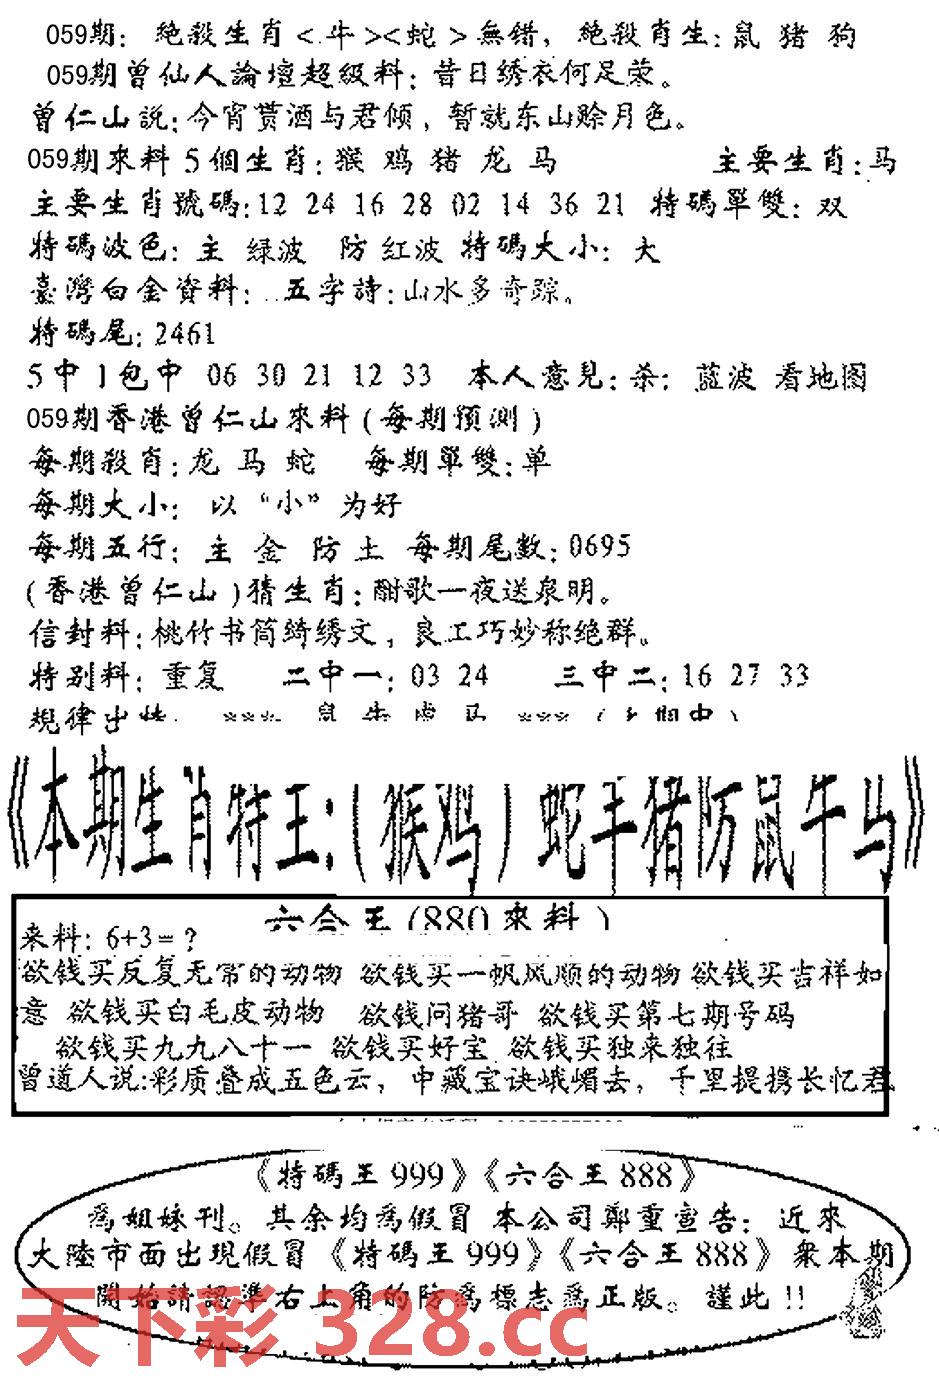 059期: 絶殺生肖<牛><蛇>無错, 絶殺肖生:鼠 猪 狗
059期曾仙人論壇超級料:昔日绣衣何足荣。
曾仁山説:今宵贳酒与君倾, 暂就东山赊月色。
059期來料 5個生肖:猴 鸡 猪 龙 马 主要生肖:马
主要生肖號碼:12 24 16 28 02 14 36 21 特碼單雙: 双
特碼波色: 主 绿波 防 红波 特碼大小: 大
臺灣白金資料: 五字詩:山水多奇踪。
特碼尾:2461
5中1包中 06 30 21 12 33 本人意見:杀: 蓝波 看地图
059期香港曾仁山來料(每期預測)
每期殺肖:龙 马 蛇 每期單雙:单
每期大小: 以“小”为好
每期五行: 主 金 防 土 每期尾数:0695
(香港曾仁山)猜生肖:酣歌一夜送泉明。
信封料:桃竹书筒绮绣文, 良工巧妙称绝群。
特别料: 重复 二中一:03 24 三中二:16 27 33
規律出特: *** 鼠 牛 虎 马 ***
《本期生肖特王:(猴鸡) 蛇羊猪防鼠牛马》
六合王(880來料)
来料: 6+3=?
欲钱买反复无常的动物 欲钱买一帆风顺的动物 欲钱买吉祥如
意 欲钱买白毛皮动物 欲钱问猪哥 欲钱买第七期号码
欲钱买九九八十一 欲钱买好宝 欲钱买独来独往
曾道人说:彩质叠成五色云, 中藏宝诀峨嵋去, 千里提携长忆君
《特碼王999》《六合王888》
為姐妹刊。其余均為假冒 本公司鄭重宣告: 近來
大陸市面出現假冒《特碼王999》《六合王888》衆本期
開始請認準右上角的防為標志為正版。謹此!!
天下彩 328.cc